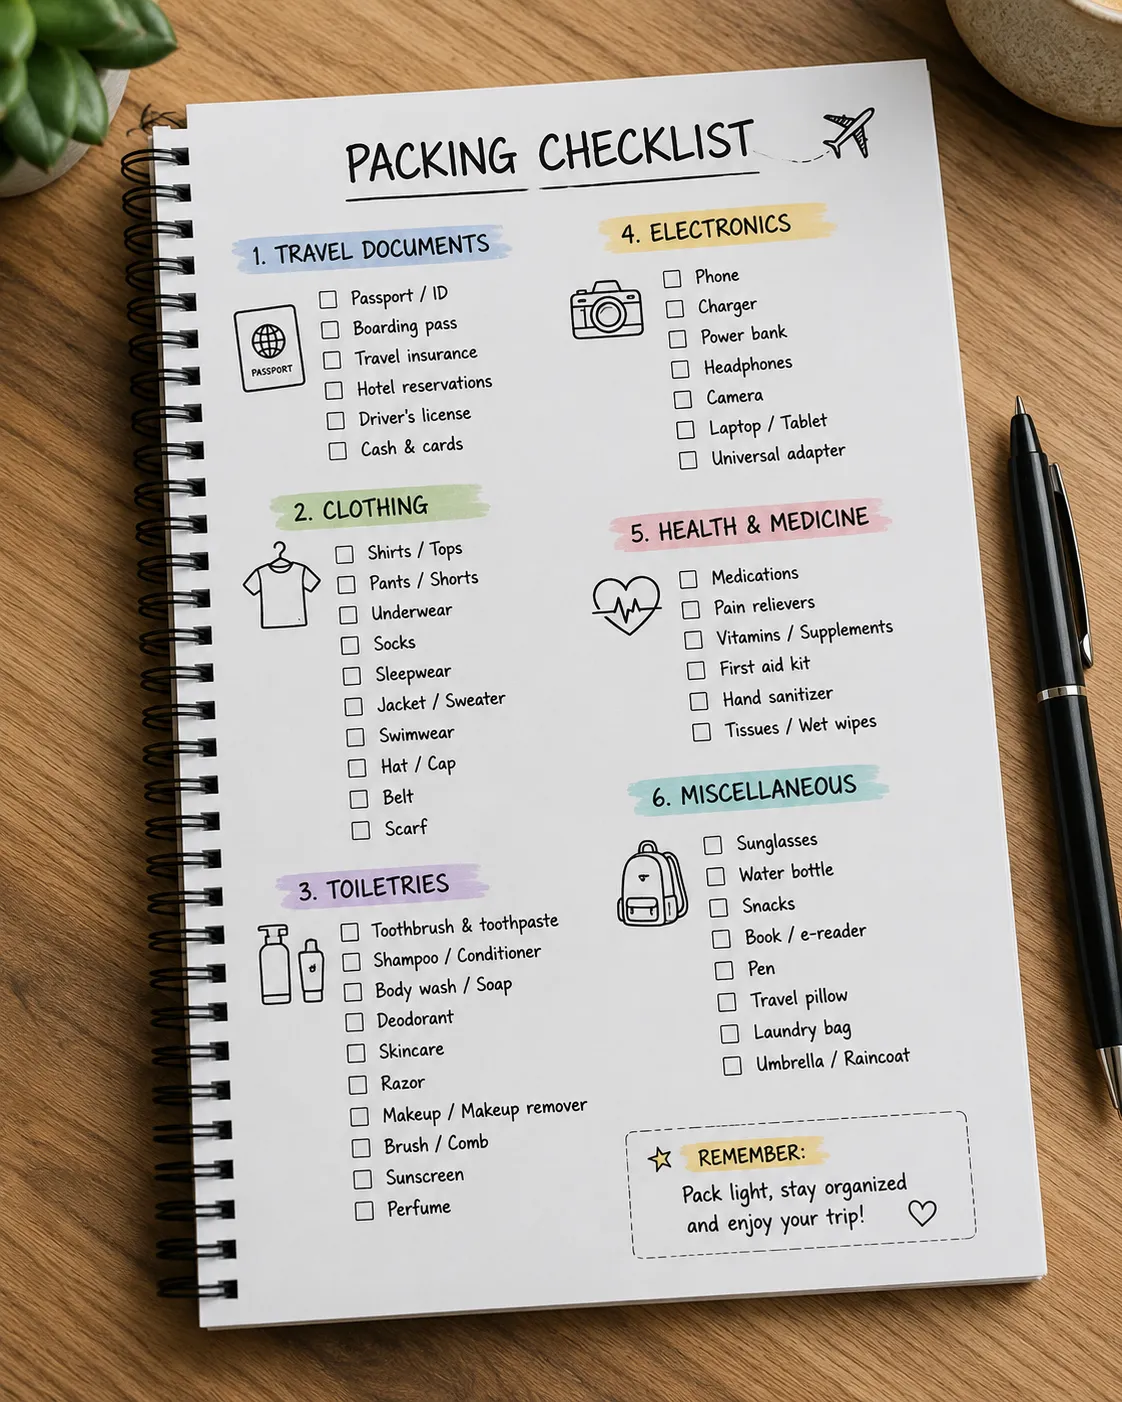 PACKING CHECKLIST
1. TRAVEL DOCUMENTS
PASSPORT
Passport / ID
Boarding pass
Travel insurance
Hotel reservations
Driver's license
Cash & cards
2. CLOTHING
Shirts / Tops
Pants / Shorts
Underwear
Socks
Sleepwear
Jacket / Sweater
Swimwear
Hat / Cap
Belt
Scarf
3. TOILETRIES
Toothbrush & toothpaste
Shampoo / Conditioner
Body wash / Soap
Deodorant
Skincare
Razor
Makeup / Makeup remover
Brush / Comb
Sunscreen
Perfume
4. ELECTRONICS
Phone
Charger
Power bank
Headphones
Camera
Laptop / Tablet
Universal adapter
5. HEALTH & MEDICINE
Medications
Pain relievers
Vitamins / Supplements
First aid kit
Hand sanitizer
Tissues / Wet wipes
6. MISCELLANEOUS
Sunglasses
Water bottle
Snacks
Book / e-reader
Pen
Travel pillow
Laundry bag
Umbrella / Raincoat
REMEMBER:
Pack light, stay organized
and enjoy your trip!